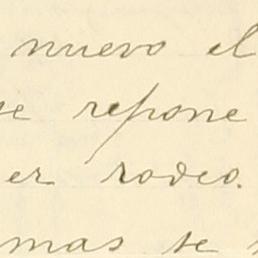 nuevo el
se repone
er rodeo.
mas se